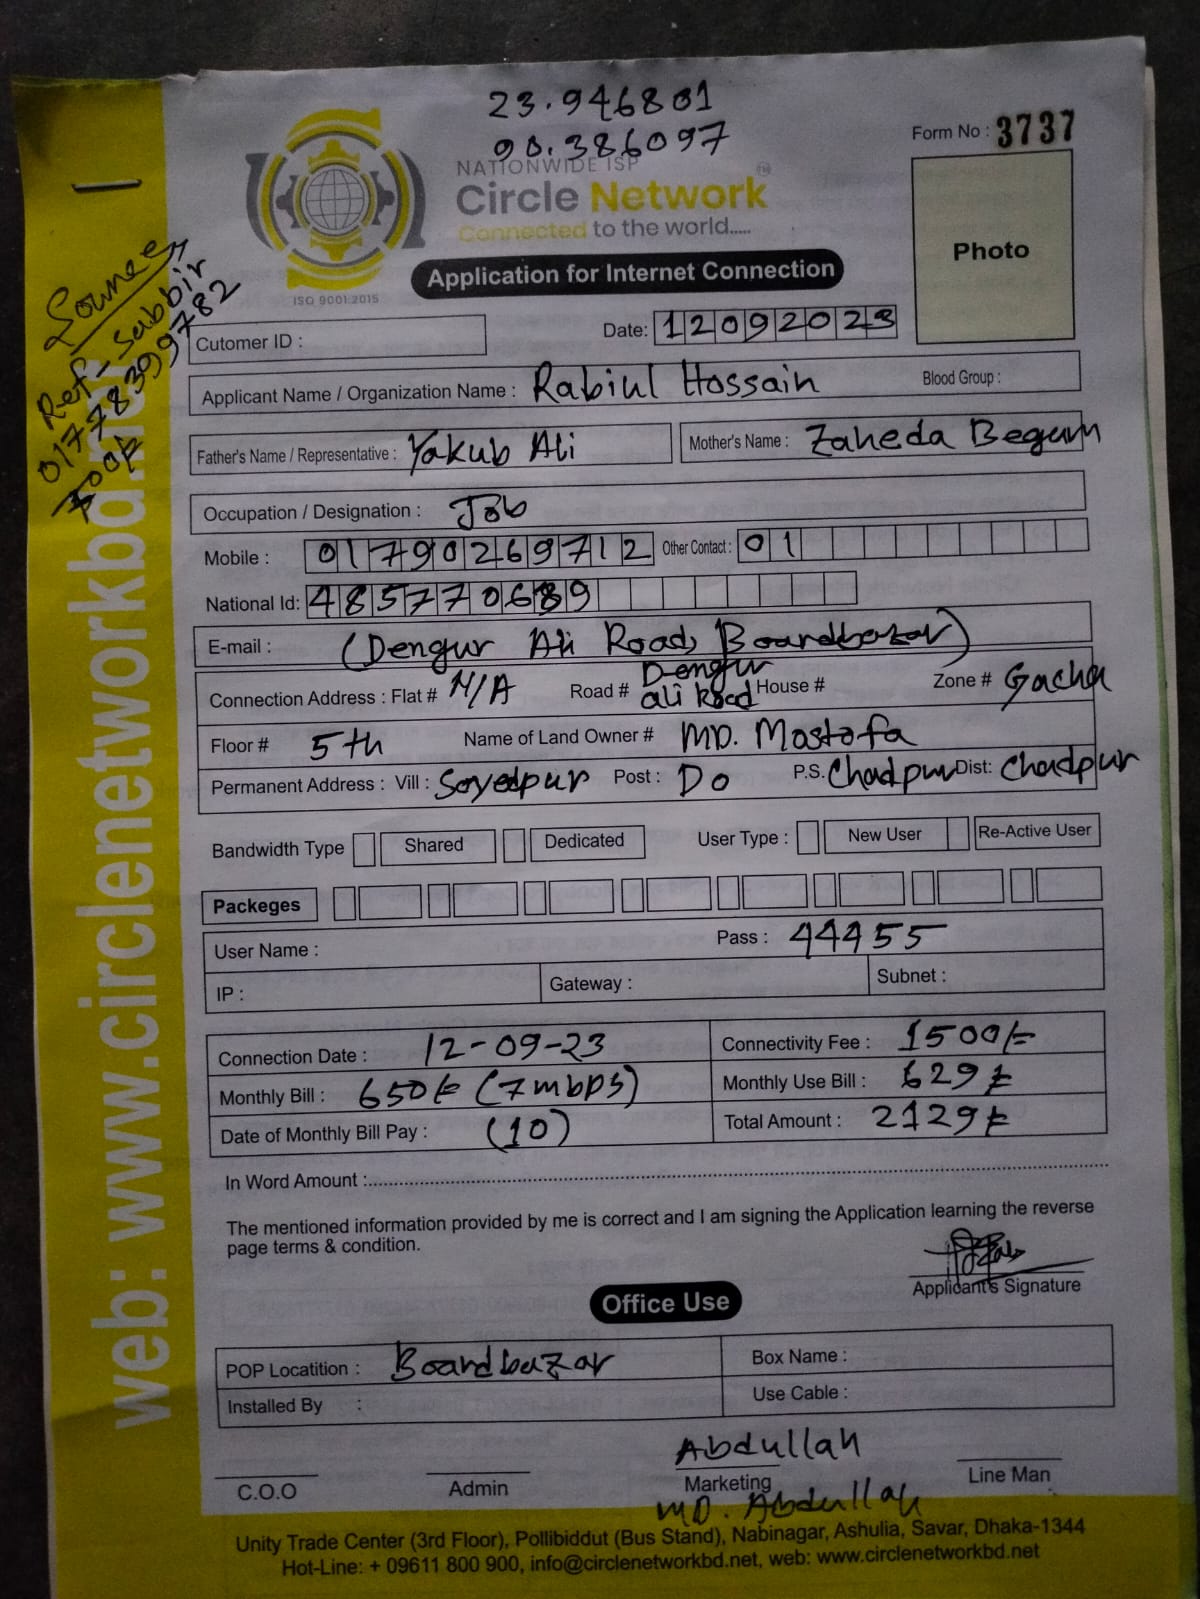 23.946801
90.386097
Form No : 3737
NATIONWIDE ISP
Circle Network
Connected to the world.....
ISO 9001:2015
Photo
Application for Internet Connection
Ref-Sabbir
01778399782
web: www.circlenetworkbd.net
Cutomer ID :
Date: 12092023
Applicant Name / Organization Name : Rabiul Hossain Blood Group :
Father's Name / Representative : Yakub Ali Mother's Name : Zaheda Begum
Occupation / Designation : Job
Mobile : 01790269712 Other Contact : 01
National Id:
E-mail : (Dengur Ali Road, Boardbazar)
Connection Address : Flat # N/A Road # Dengur Ali Road House # Zone # Gacha
Floor # 5th Name of Land Owner # MD. Mostofa
Permanent Address : Vill : Soyedpur Post : Do P.S. Chadpur Dist: Chadpur
Bandwidth Type Shared Dedicated User Type : New User Re-Active User
Packeges
User Name : Pass : 44455
IP : Gateway : Subnet :
Connection Date : 12-09-23 Connectivity Fee : 1500/=
Monthly Bill : 650/= (7mbps) Monthly Use Bill : 629/=
Date of Monthly Bill Pay : (10) Total Amount : 2129/=
In Word Amount :
The mentioned information provided by me is correct and I am signing the Application learning the reverse
page terms & condition.
Applicant's Signature
Office Use
POP Locatition : Boardbazar Box Name :
Installed By : Use Cable :
Abdullah
C.O.O Admin Marketing Line Man
MD. Abdullah
Unity Trade Center (3rd Floor), Pollibiddut (Bus Stand), Nabinagar, Ashulia, Savar, Dhaka-1344
Hot-Line: + 09611 800 900, info@circlenetworkbd.net, web: www.circlenetworkbd.net